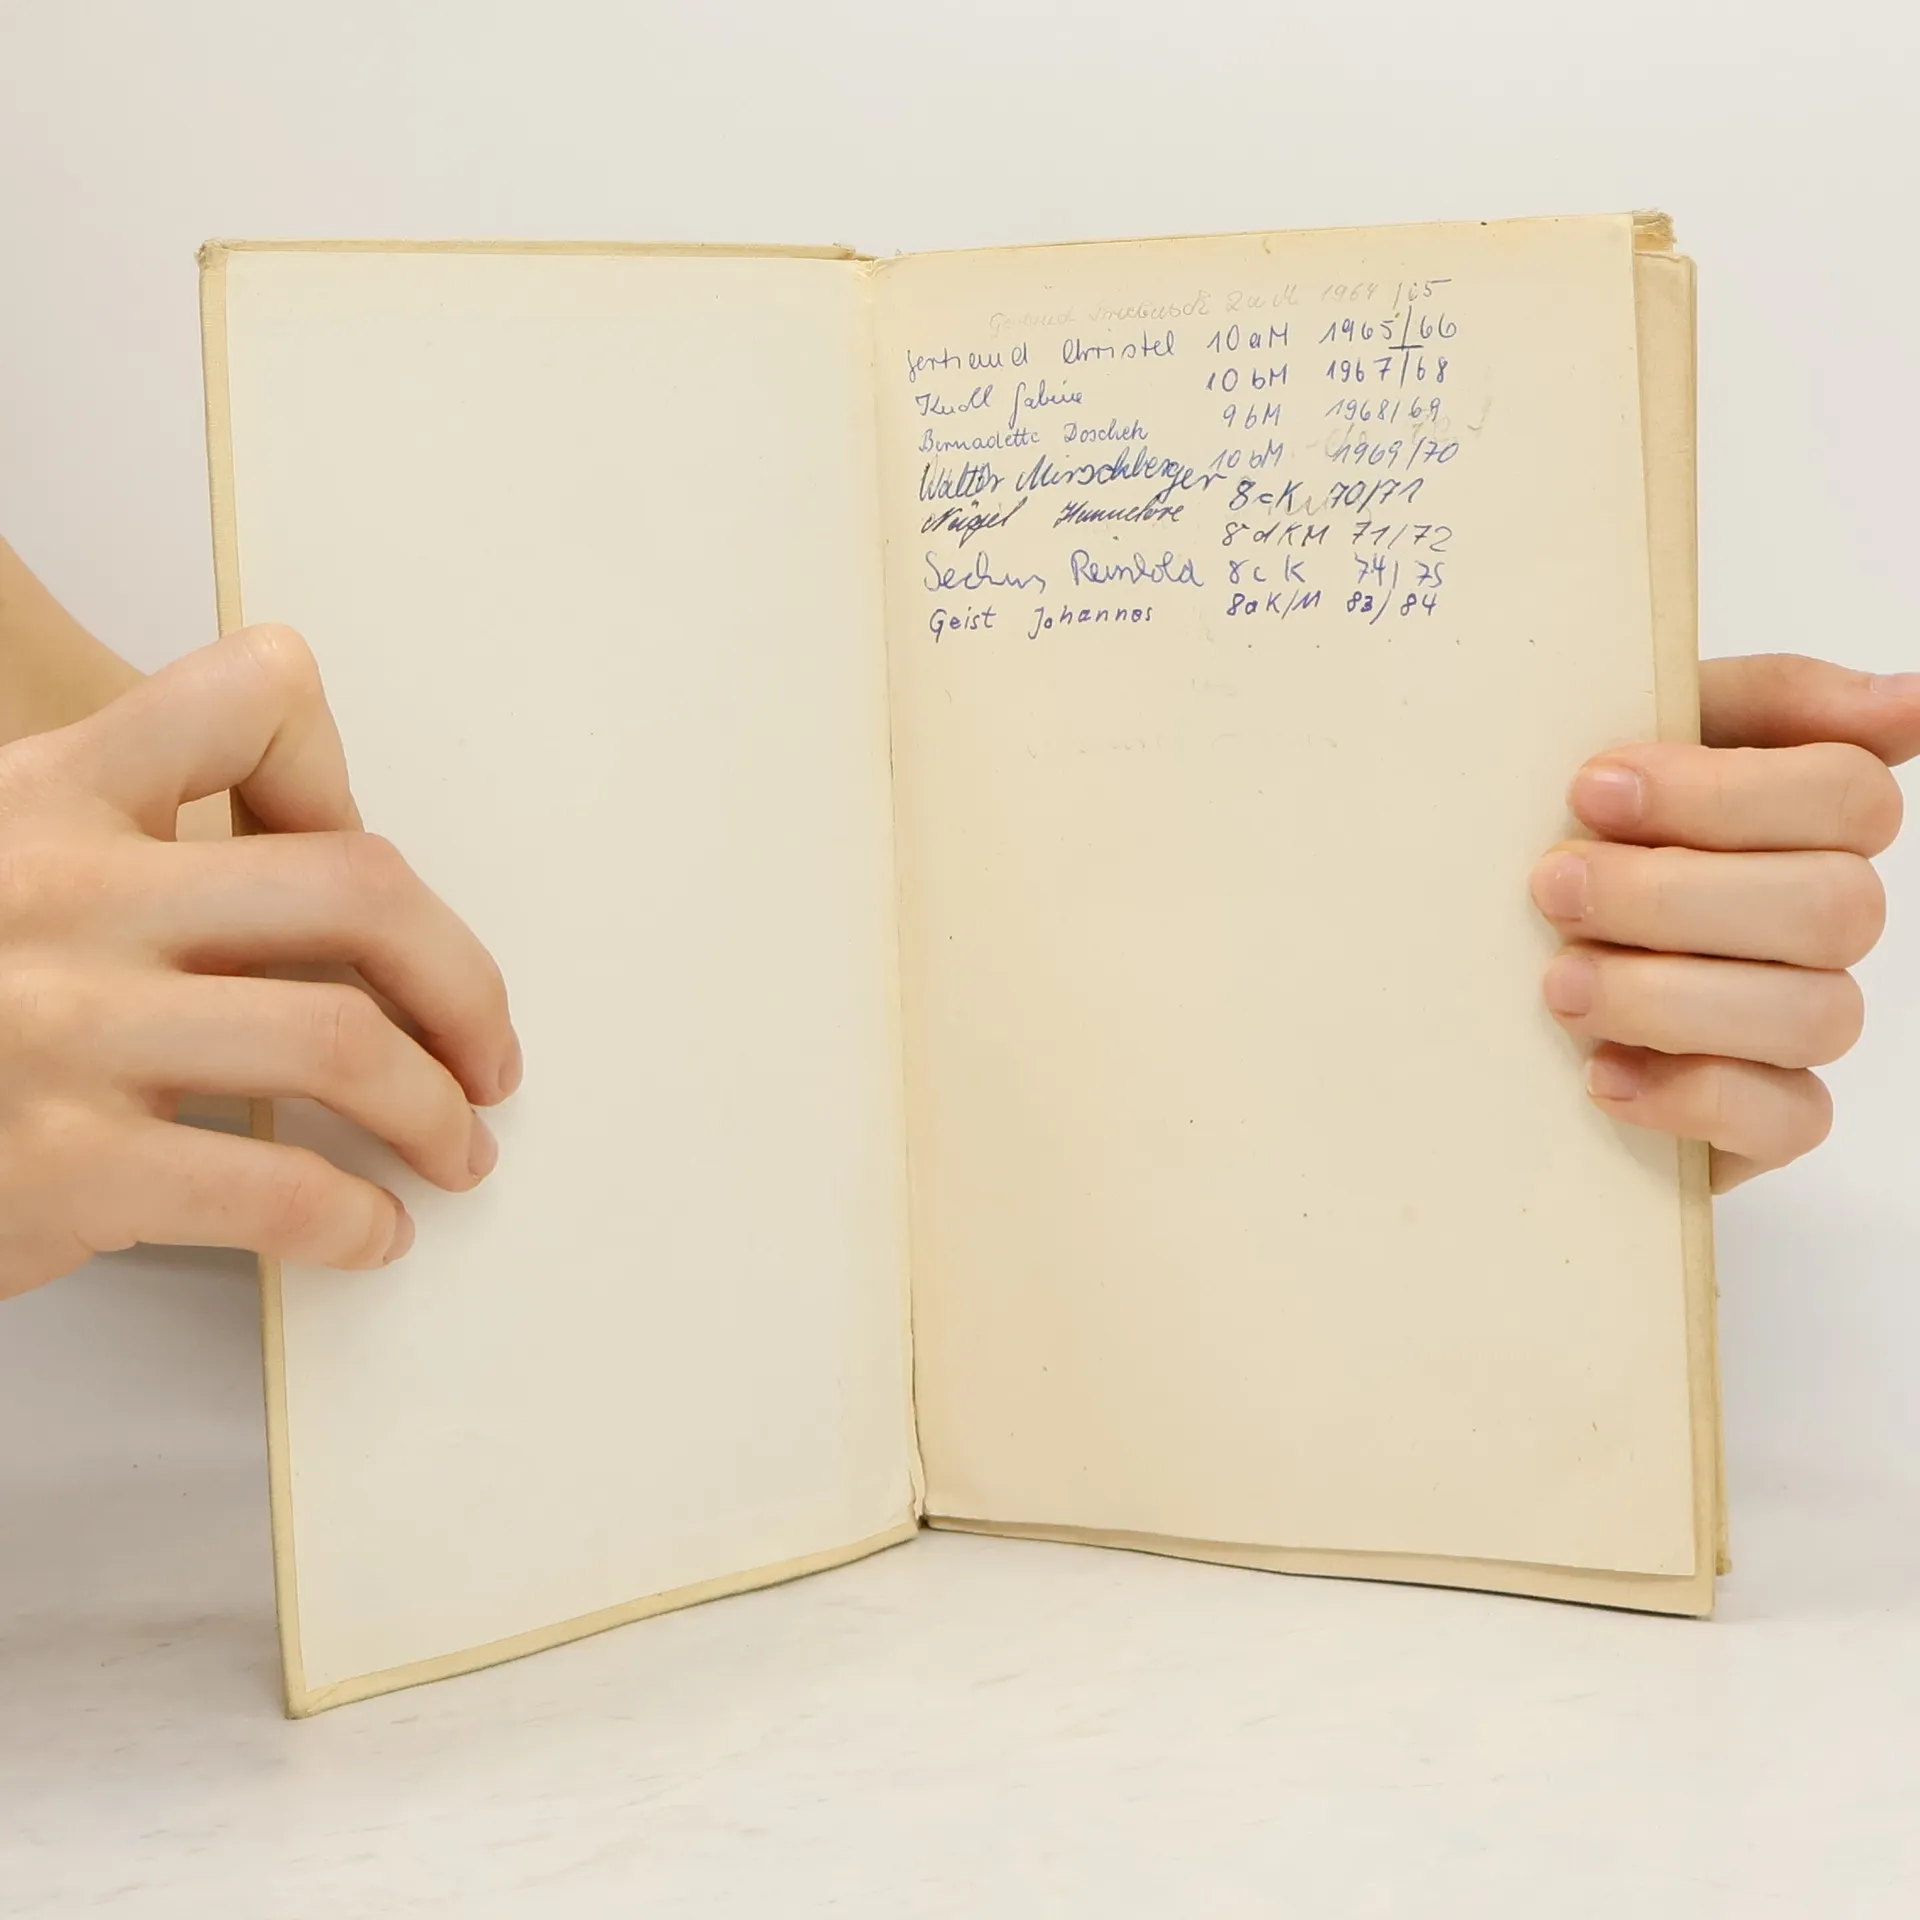 Gertraud 2aM 1964/65
Gertraud Christel 10aM 1965/66
Knoll Sabine 10bM 1967/68
Bernadette Doschek 9bM 1968/69
Walter Mirschberger 10bM 1969/70
Nüßel Hannelore 8cK 70/71
8dKM 71/72
Reinhold 8cK 74/75
Geist Johannes 8aK/M 83/84